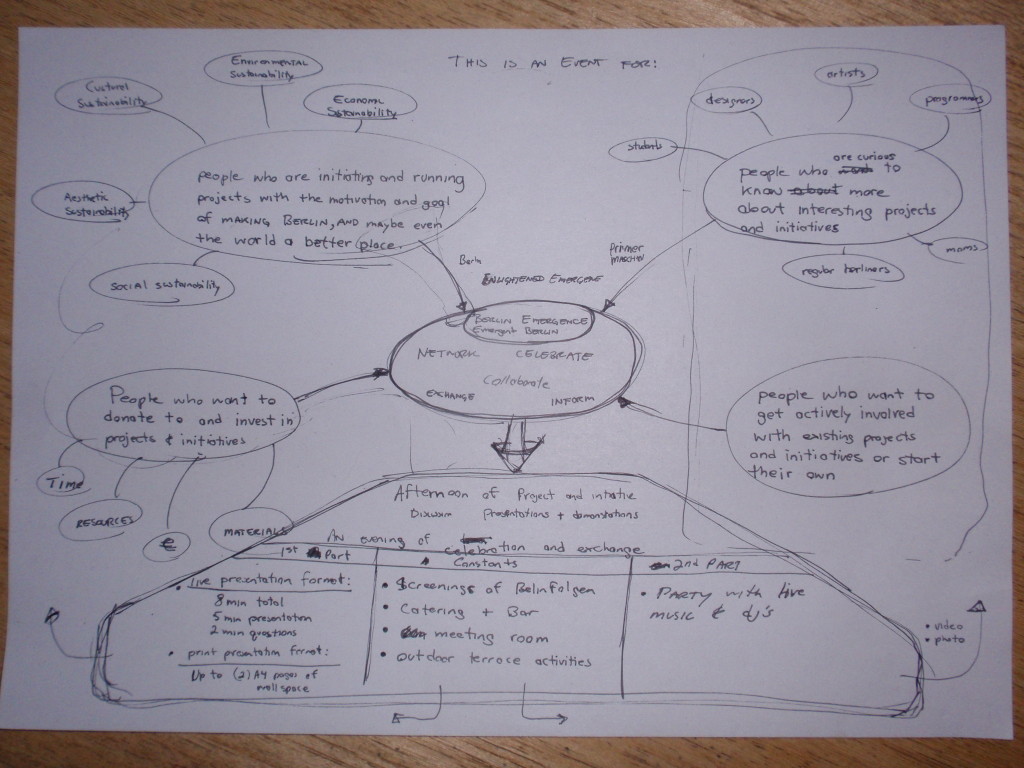 THIS IS AN EVENT FOR:
Cultural
Sustainability
Environmental
Sustainability
Economic
Sustainability
Aesthetic
Sustainability
Social sustainability
people who are initiating and running
projects with the motivation and goal
of making Berlin, and maybe even
the world a better place.
designers
artists
programmers
students
are curious
people who to
know about more
about interesting projects
and initiatives
moms
regular berliners
Berlin
Primer
ENLIGHTENED EMERGENE
BERLIN EMERGENCE
Emergent BERLIN
NETWORK CELEBRATE
Collaborate
EXCHANGE INFORM
People who want to
donate to and invest in
projects & initiatives
Time
RESOURCES
€
MATERIALS
people who want to
get actively involved
with existing projects
and initiatives or start
their own
Afternoon of Project and initiative
presentations + demonstrations
An evening of
celebration and exchange
1st Part
Live presentation format:
8 min total
5 min presentation
2 min questions
print presentation format:
Up to (2) A4 pages of
wall space
Constants
Screenings of BelinFolgen
Catering + Bar
meeting room
outdoor terrace activities
2nd PART
PARTY with live
music & dj's
video
photo